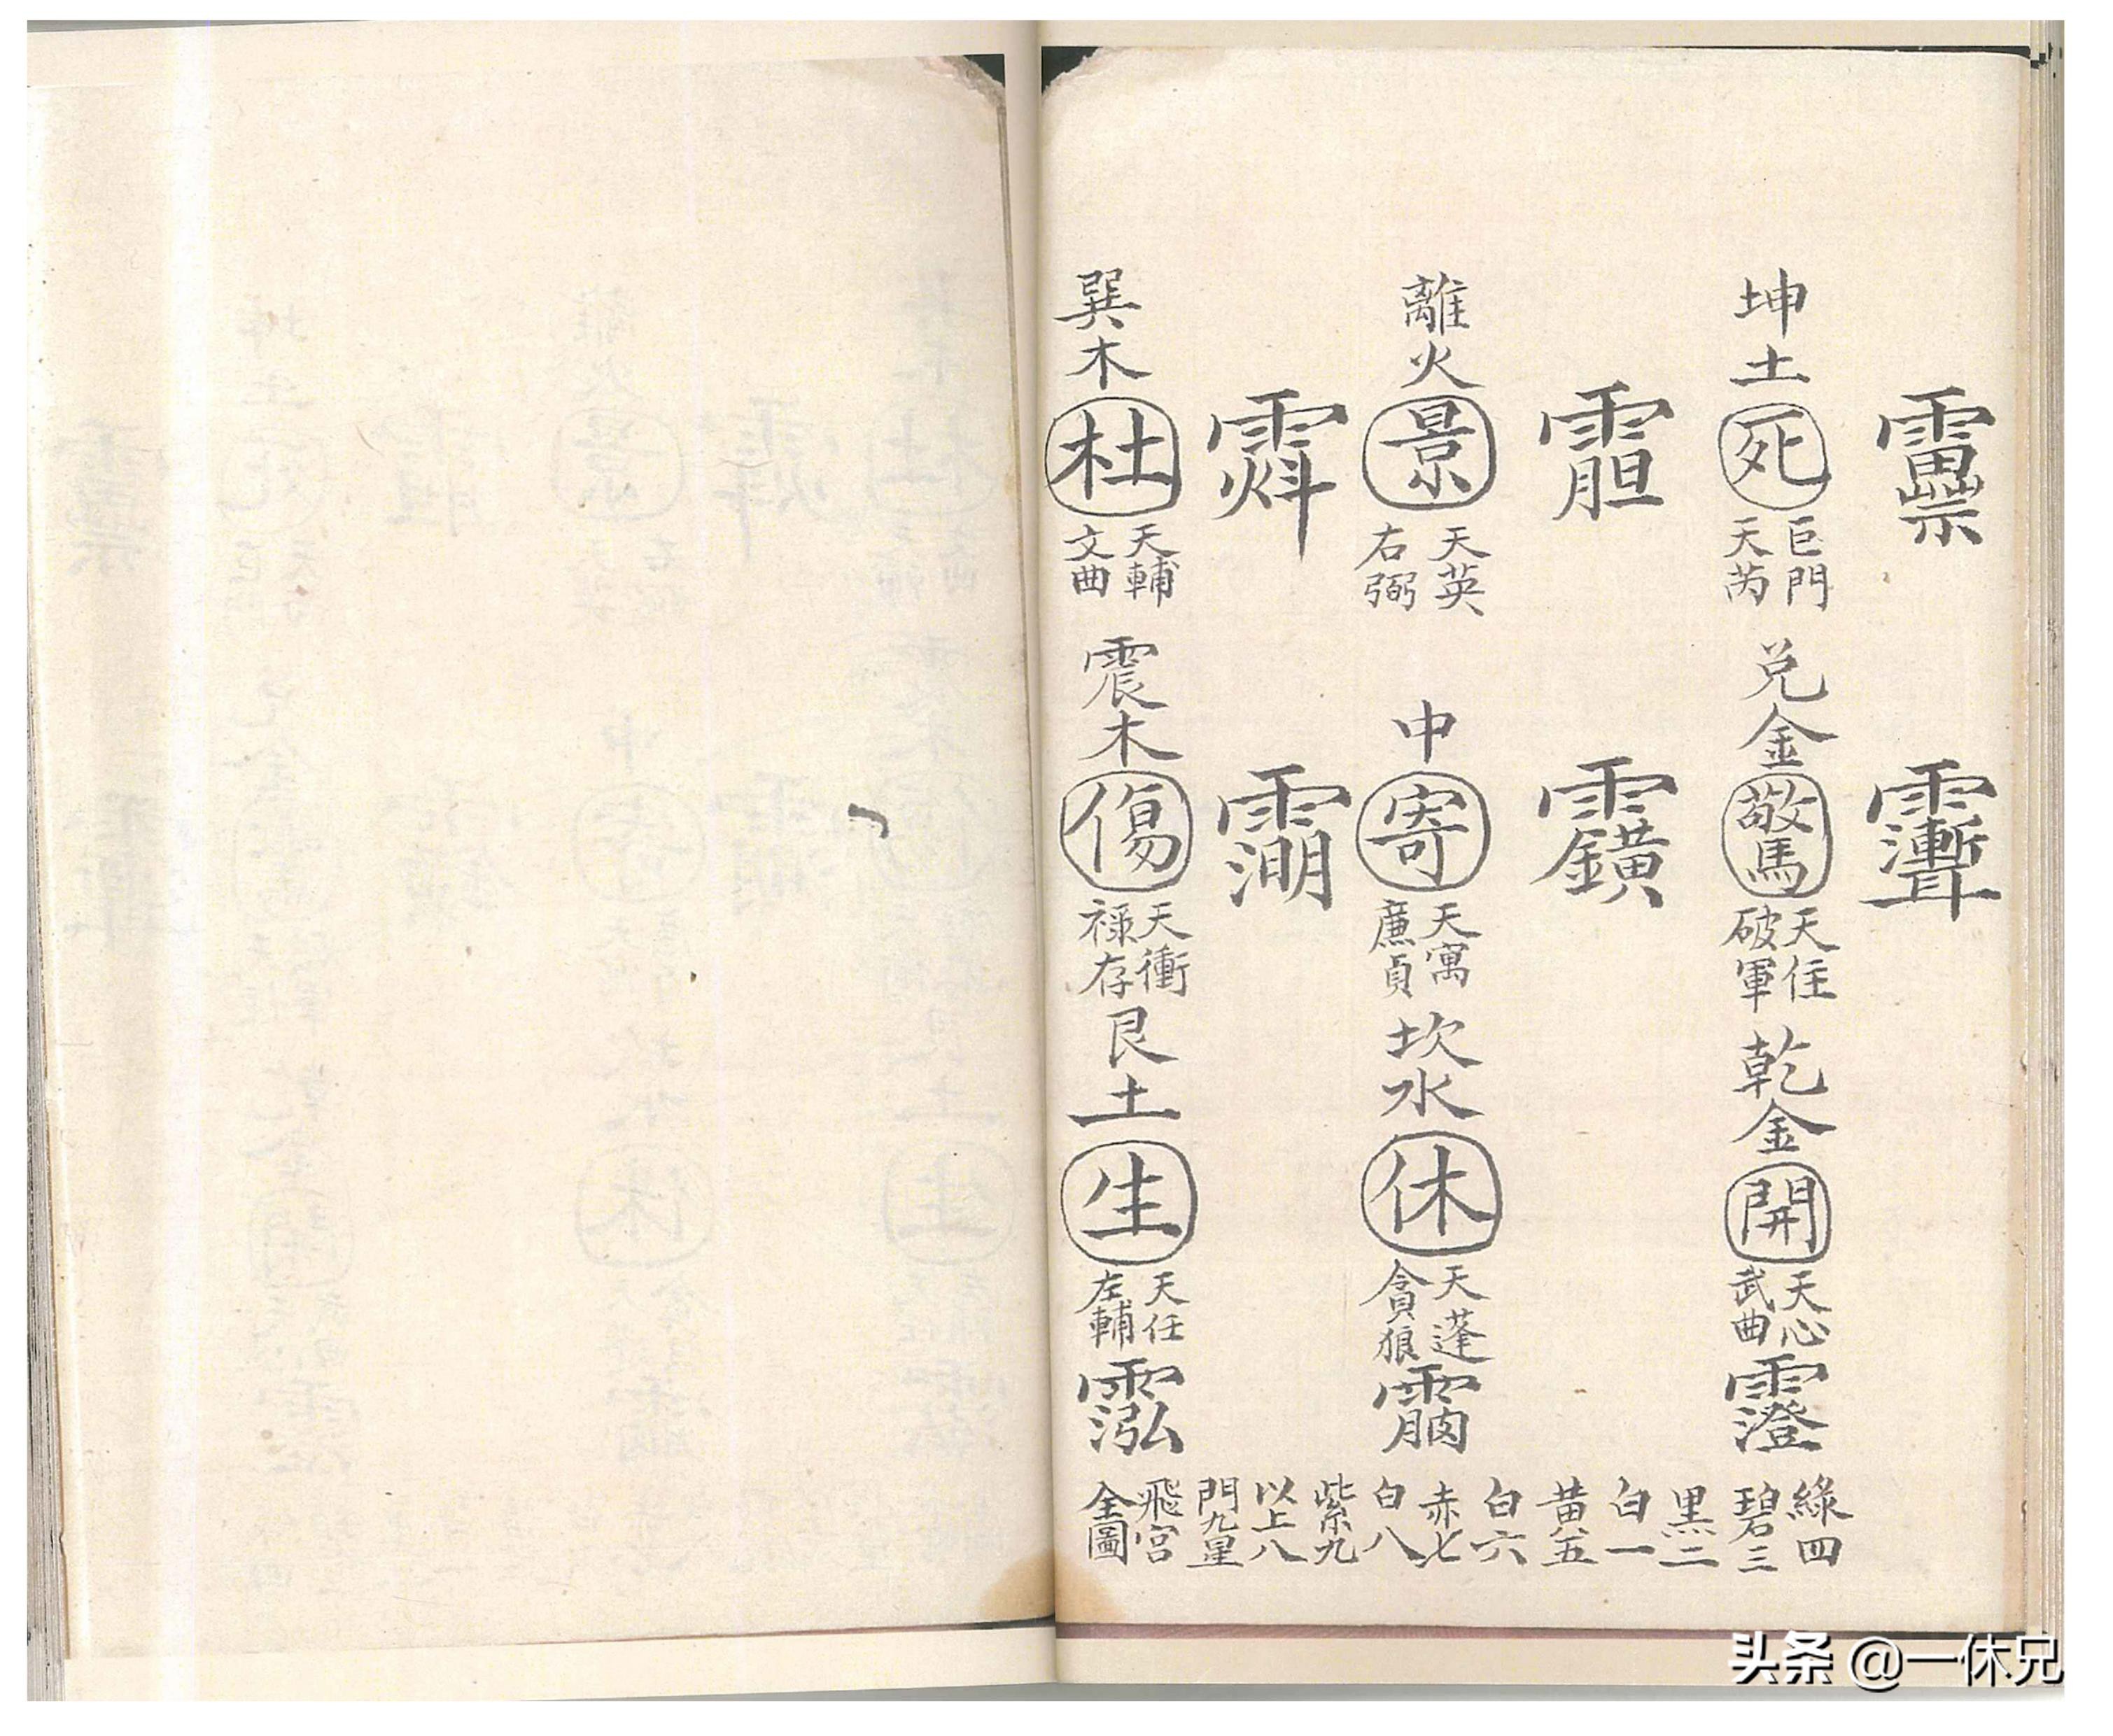 坤土死
巨門
天芮
兑金驚
天任
破軍
乾金開
天心
武曲
離火景
天英
右弼
中寄
天寓
廉貞
坎水休
天蓬
貪狼
巽木杜
天輔
文曲
震木傷
天衝
祿存
艮土生
天任
左輔
綠四
碧三
黑二
白一
黄五
白六
赤七
白八
紫九
以上八
門九星
飛宮
全圖
头条 @一休兄